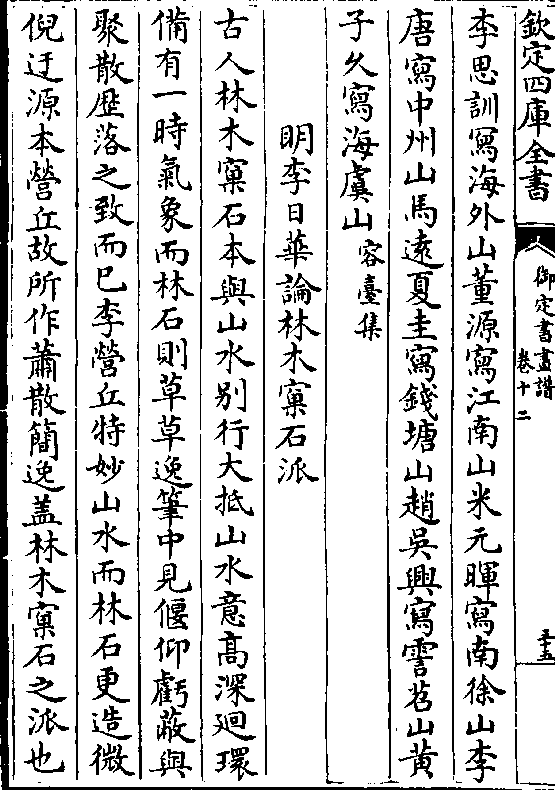 欽定四庫全書
御定書畫譜
卷十二
三十五
李思訓寫海外山董源寫江南山米元暉寫南徐山李
唐寫中州山馬逺夏圭寫錢塘山趙吳興寫霅苕山黃
子久寫海虞山容臺集
明李日華論林木窠石派
古人林木窠石本與山水别行大抵山水意髙深廻環
備有一時氣象而林石則草草逸筆中見偃仰虧蔽與
聚散歴落之致而已李營丘特妙山水而林石更造微
倪迂源本營丘故所作蕭散簡逸盖林木窠石之派也